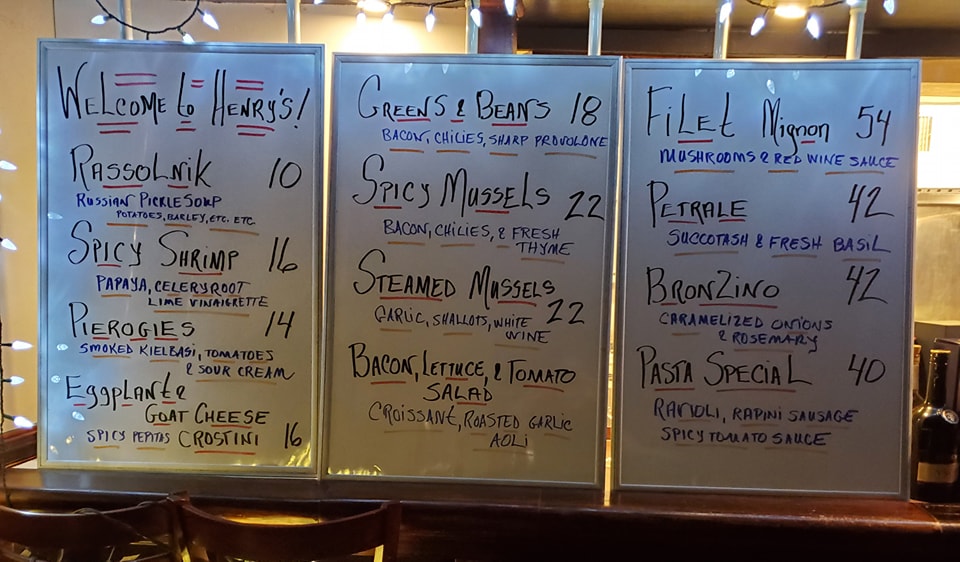 Welcome to Henry's!
Rassolnik 10
Russian Pickle Soup
Potatoes, Barley, etc. etc.
Spicy Shrimp 16
Papaya, Celeryroot
Lime Vinaigrette
Pierogies 14
Smoked Kielbasi, Tomatoes
& Sour Cream
Eggplant &
Goat Cheese
Spicy Pepitas Crostini 16
Greens & Beans 18
Bacon, Chilies, Sharp Provolone
Spicy Mussels 22
Bacon, Chilies, & Fresh
Thyme
Steamed Mussels
Garlic, Shallots, White 22
Wine
Bacon, Lettuce, & Tomato
Salad
Croissant, Roasted Garlic
Aoli
Filet Mignon 54
Mushrooms & Red Wine Sauce
Petrale 42
Succotash & Fresh Basil
Bronzino 42
Caramelized Onions
& Rosemary
Pasta Special 40
Ravioli, Rapini Sausage
Spicy Tomato Sauce